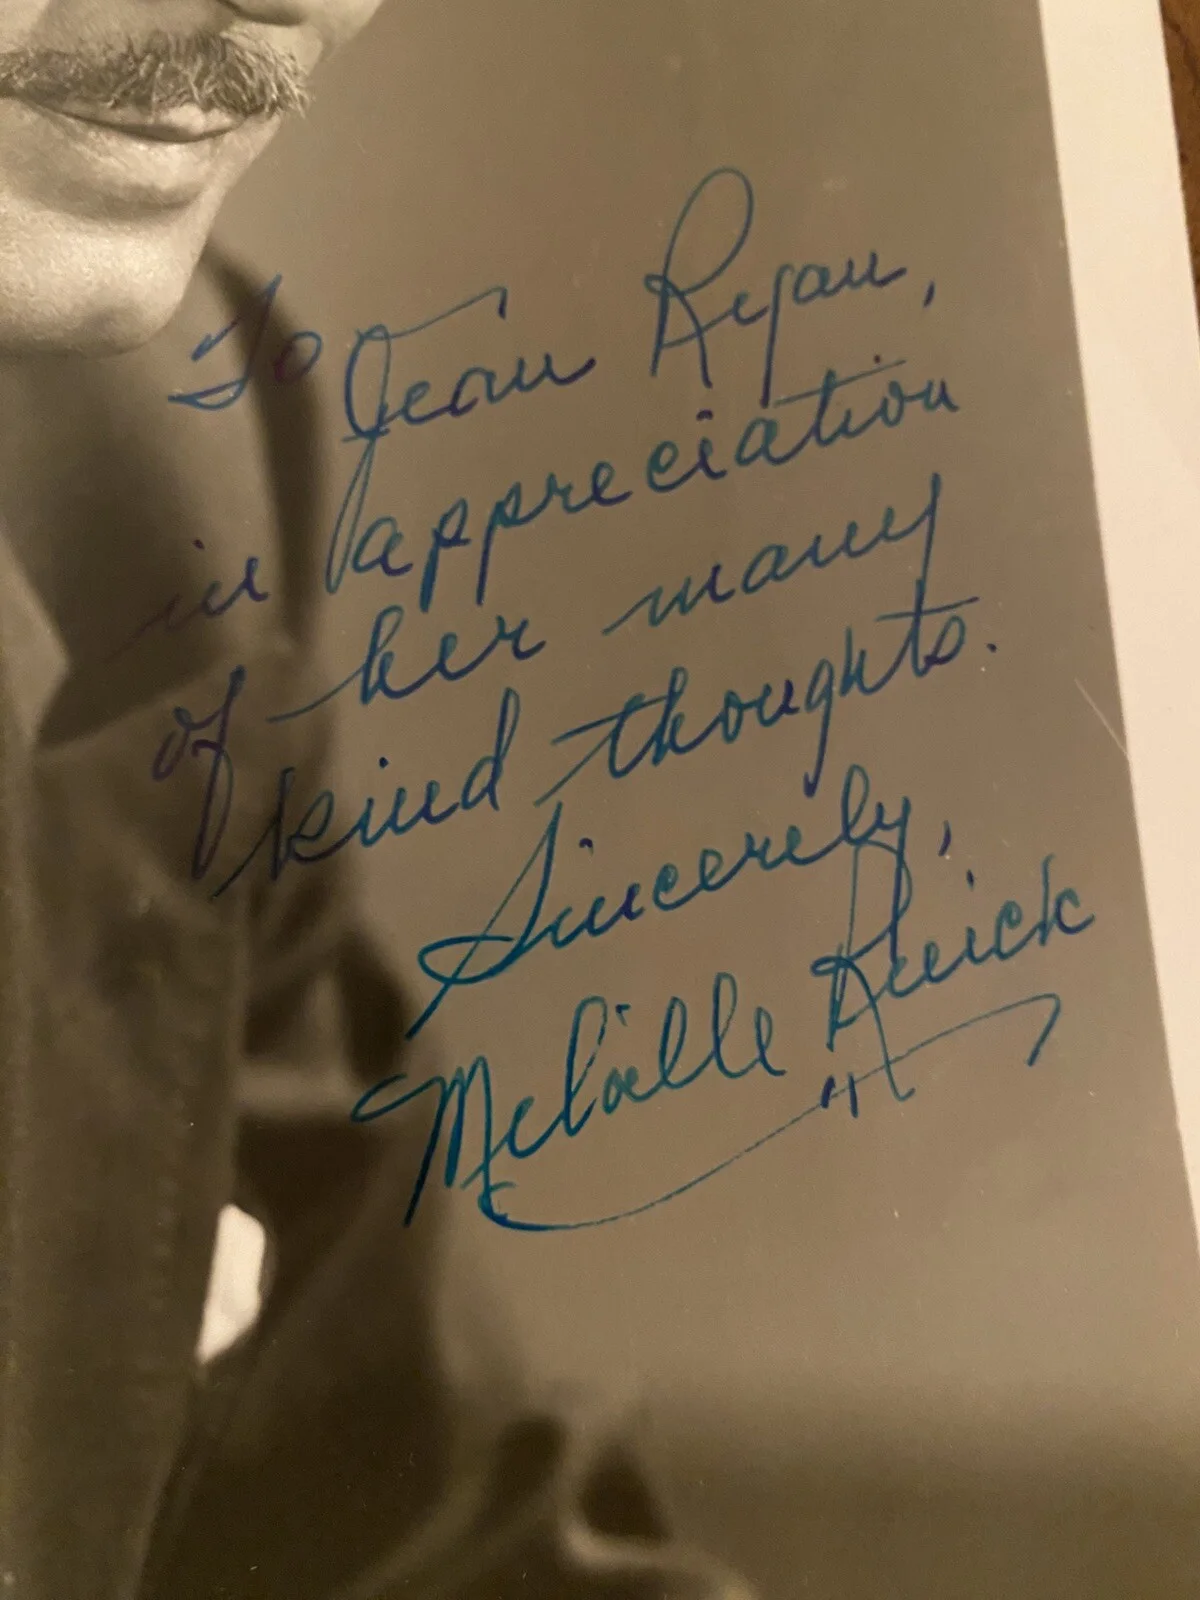 To Jean Ryan,
in appreciation
of her many
kind thoughts.
Sincerely,
Melville Ruick